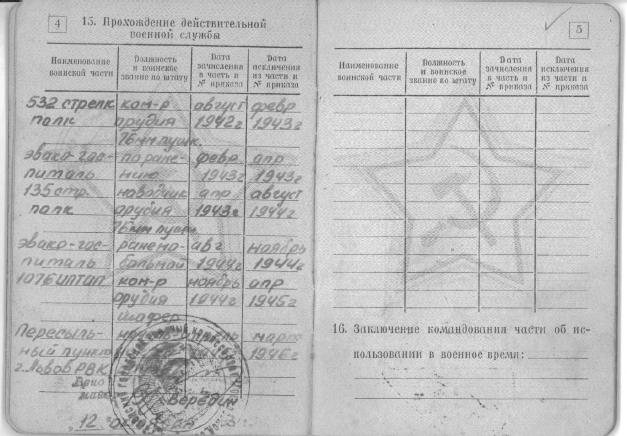 4
13. Прохождение действительной
военной службы
Наименование воинской части
Должность и воинское звание по штату
Дата зачисления в часть и № приказа
Дата исключения из части и № приказа
532 стрелк ком-р август февр
полк орудия 1942г 1943г
76мм пушк.
эвако-гос- по ране- февр. апр
питаль нию 1943г 1943г
135 стр. наводчик апр. август
полк орудия 1943г 1944г
76мм пушк.
эвако-гос- ранено- авг ноябрь
питаль больной 1944г 1944г
1076 ИПТАП ком-р ноябрь апр
орудия 1944г 1945г
шофер
Пересыль- март
ный пункт 1946г
г. Львов РВК
Вередин
12
5
Наименование воинской части
Должность и воинское звание по штату
Дата зачисления в часть и № приказа
Дата исключения из части и № приказа
16. Заключение командования части об ис-
пользовании в военное время: